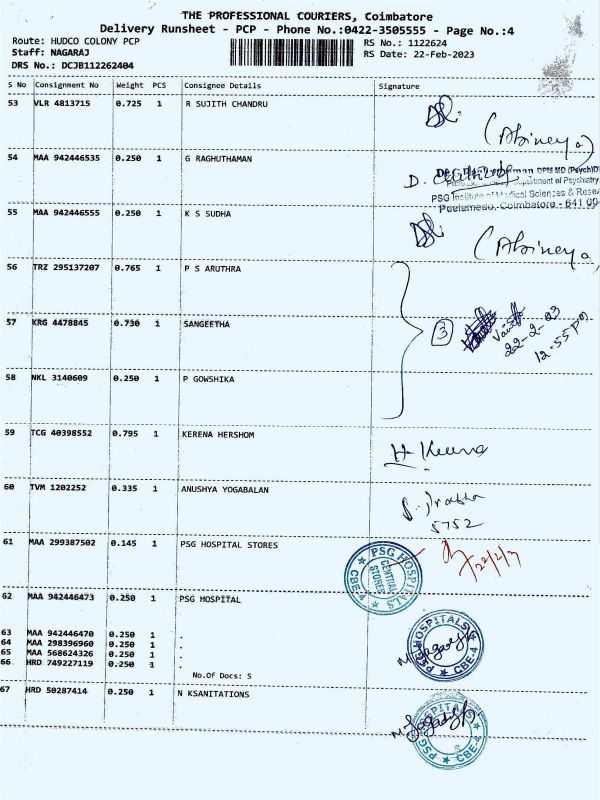 THE PROFESSIONAL COURIERS, Coimbatore
Delivery Runsheet - PCP - Phone No.:0422-3505555 - Page No.:4
Route: HUDCO COLONY PCP
RS No.: 1122624
Staff: NAGARAJ
RS Date: 22-Feb-2023
DRS No.: DCJB112262404
S No Consignment No Weight PCS Consignee Details Signature
53 VLR 4813715 0.725 1 R SUJITH CHANDRU
(Abineya)
54 MAA 942446535 0.250 1 G RAGHUTHAMAN
DPM MD (Psych)
Department of Psychiatry
PSG Institute of Medical Sciences & Resea
Peelamedu, Coimbatore - 641 00
55 MAA 942446555 0.250 1 K S SUDHA
(Abineya)
56 TRZ 295137207 0.765 1 P S ARUTHRA
57 KRG 4478845 0.730 1 SANGEETHA
3
22-2-23
12.55 Pm
58 NKL 3140609 0.250 1 P GOWSHIKA
59 TCG 40398552 0.795 1 KERENA HERSHOM
60 TVM 1202252 0.335 1 ANUSHYA YOGABALAN
5752
61 MAA 299387502 0.145 1 PSG HOSPITAL STORES
PSG HOSPITALS
CENTRAL STORES
CBE-4
62 MAA 942446473 0.250 1 PSG HOSPITAL
63 MAA 942446470 0.250 1 .
64 MAA 298396960 0.250 1 .
65 MAA 568624326 0.250 1 .
66 HRD 749227119 0.250 1 .
No.Of Docs: 5
PSG HOSPITALS
CBE-4
67 HRD 50287414 0.250 1 N KSANITATIONS
PSG HOSPITALS
CBE-4